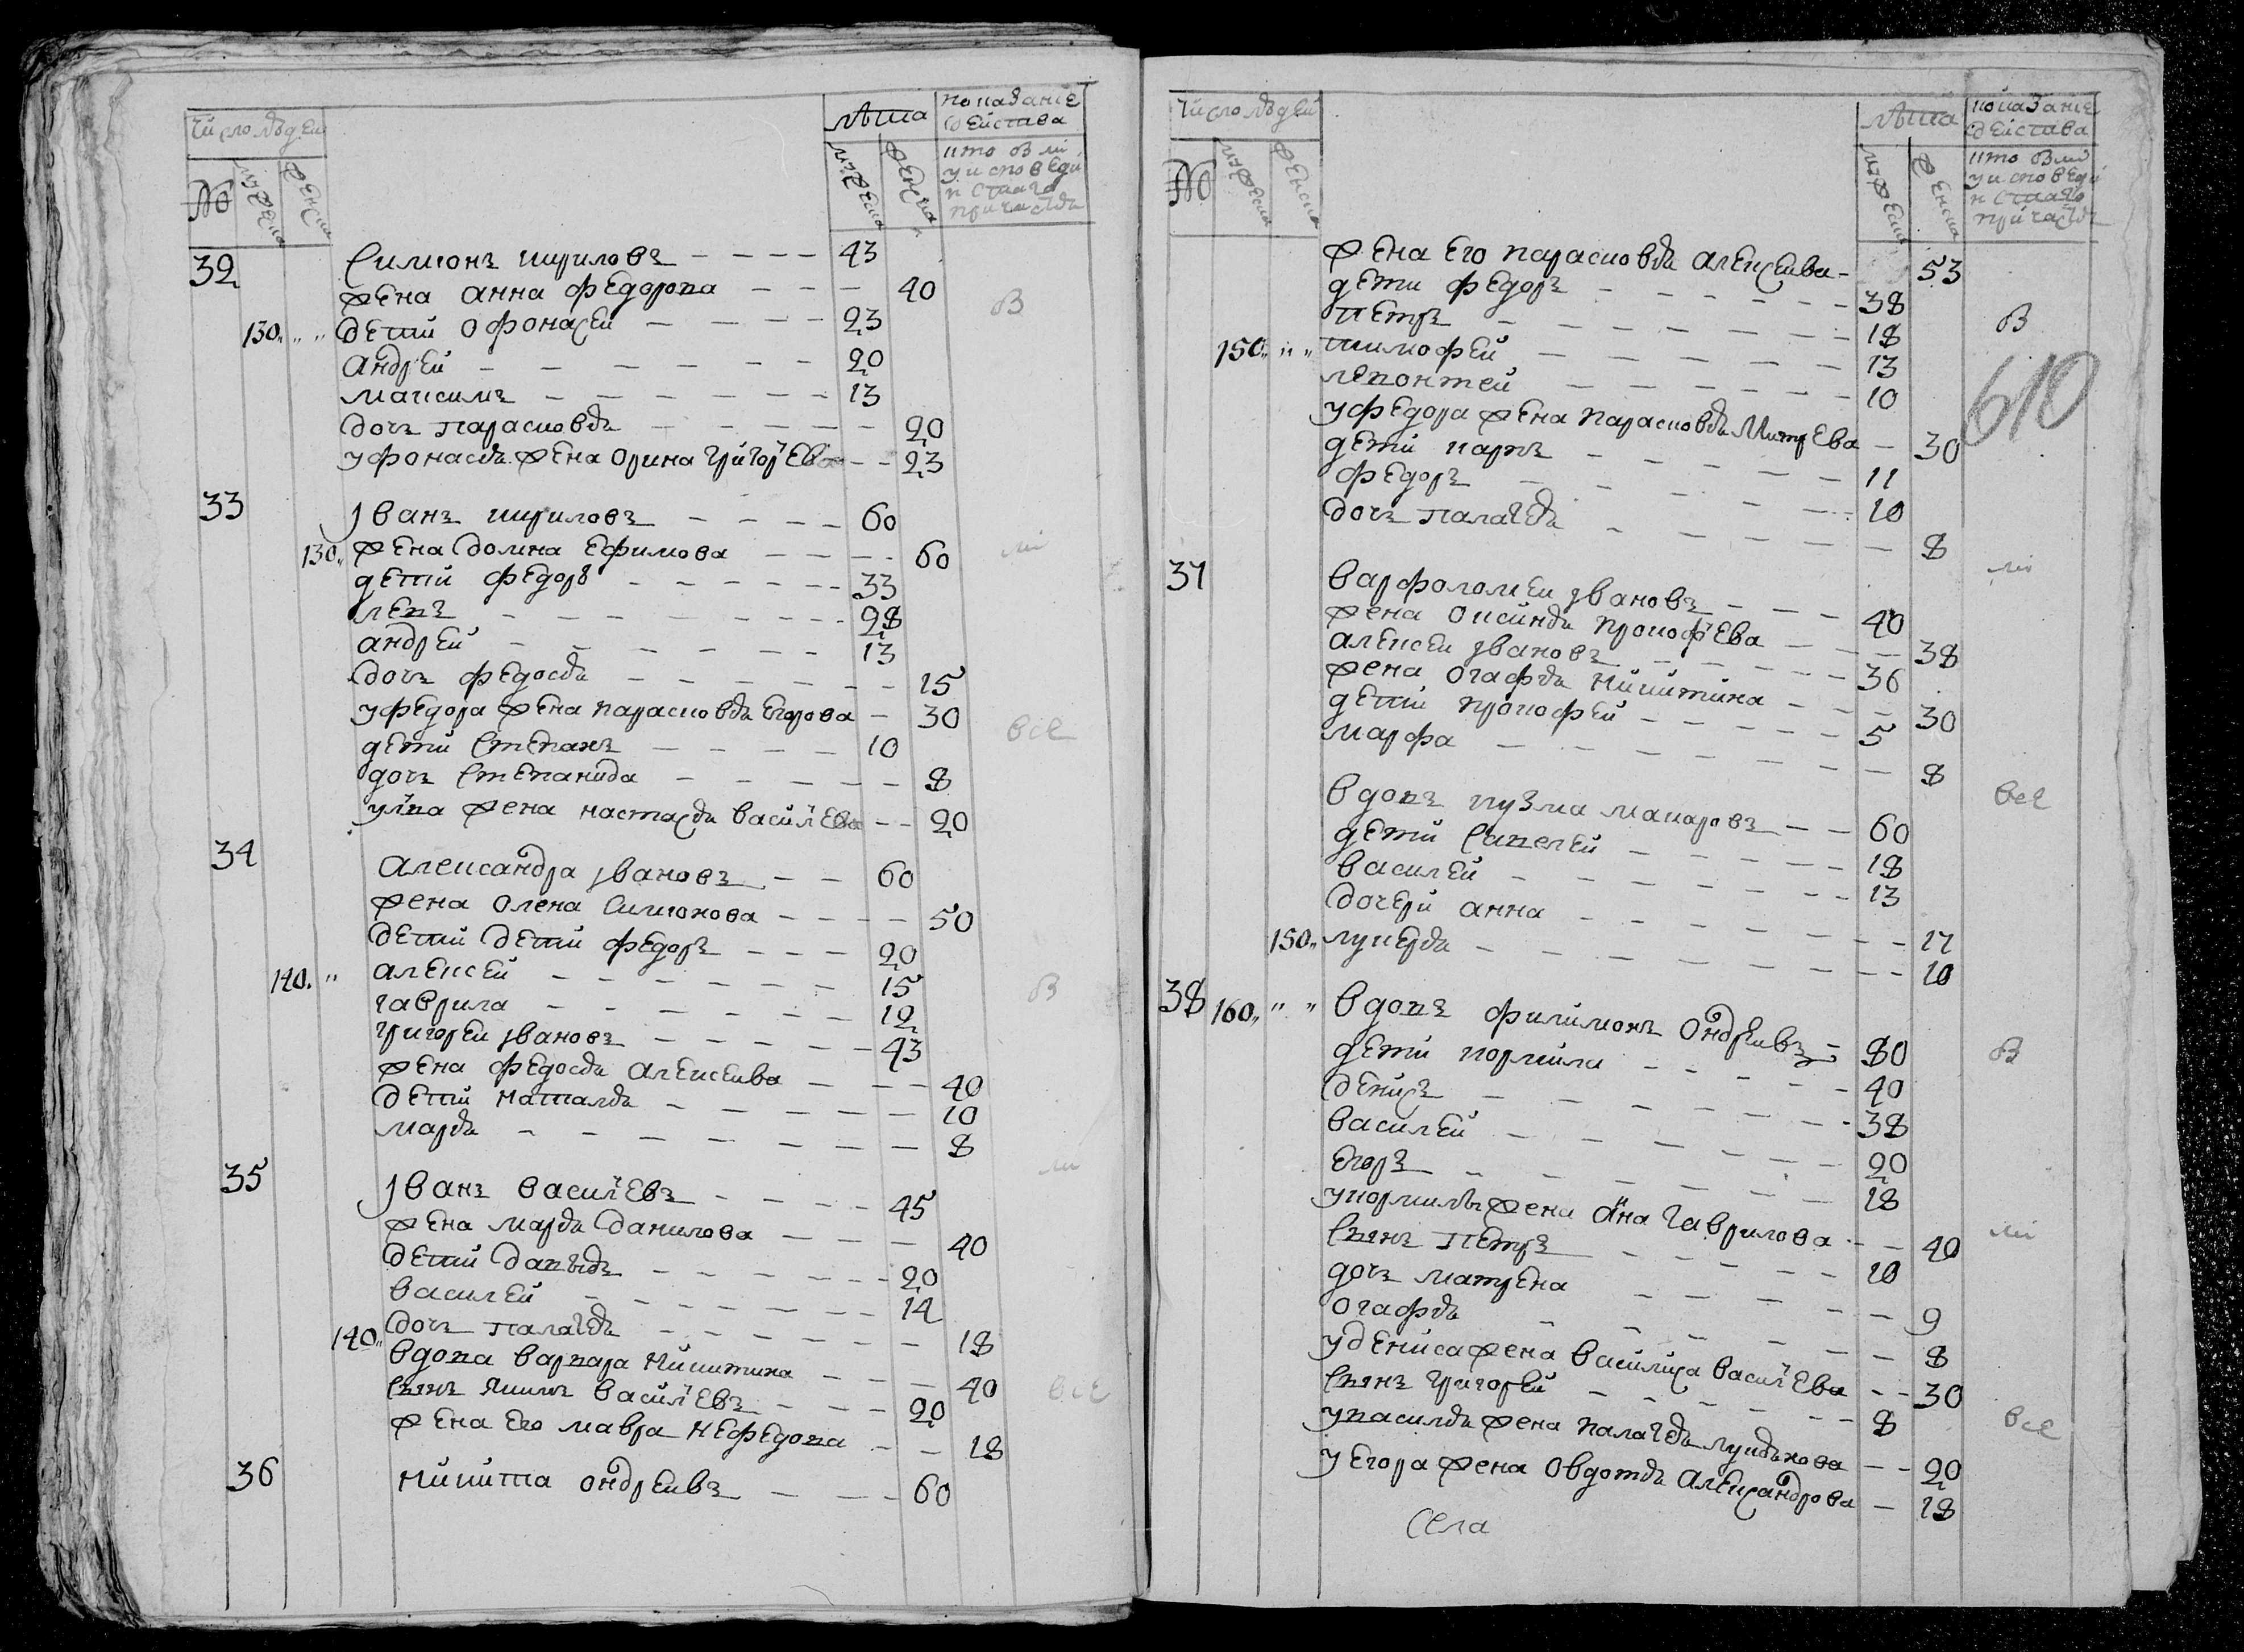 число людей
лѣта
показаніе дѣйства
№
мужеска
женска
мужеска
женска
кто былі у исповеди и святаго причастья
32 Симионъ кириловъ 43
жена анна федорова 40
130 дети офонасей 23
андрей 20
максимъ 13
дочь парасковья 20
у фонасья жена орина григорьева 23
В
33 Іванъ кириловъ 60
130 жена домна ефимова 60
дети федоръ 33
левъ 28
андрей 13
дочь федосья 15
у федора жена парасковья егорова 30
дети степанъ 10
дочь степанида 8
у лва жена настасья васильева 20
все
34 александра івановъ 60
жена олена симионова 50
дети дети федоръ 20
140 алексей 15
гаврила 12
григореи івановъ 43
жена федосья алексеива 40
дети наталья 10
марья 8
В
35 Іванъ васильевъ 45
жена марья данилова 40
дети давыдъ 20
василей 14
дочь палагья 18
140 вдова варвара никитина 40
сынъ якимъ васильевъ 20
жена его мавра нефедова 18
все
36 никита ондреивъ 60
число людей
лѣта
показаніе дѣйства
№
мужеска
женска
мужеска
женска
кто былі у исповеди и святаго причастья
жена его парасковья алексеива 53
дети федоръ 38
петръ 18
150 тимофей 13
левонтей 10
у федора жена парасковья митрева 30
дети карпъ 11
федоръ 10
дочь палагья 8
В
610
37 варфоломеи івановъ 40
жена оксинья прокофьева 38
алексеи івановъ 36
жена огафья никитина 30
дети прокофей 5
марфа 8
вдовъ кузма макаровъ 60
дети савелей 18
василей 13
дочери анна 17
150 лукерья 10
все
38 160 вдовъ филимонъ ондреивъ 80
дети кормила 40
денисъ 38
василей 20
егоръ 18
у кормилы жена анна гаврилова 40
сынъ петръ 10
дочь матрена 9
огафья 8
у дениса жена василиса васильева 30
сынъ григорей 8
у василья жена палагья лукьянова 20
у егора жена овдотья александрова 18
В
все
села